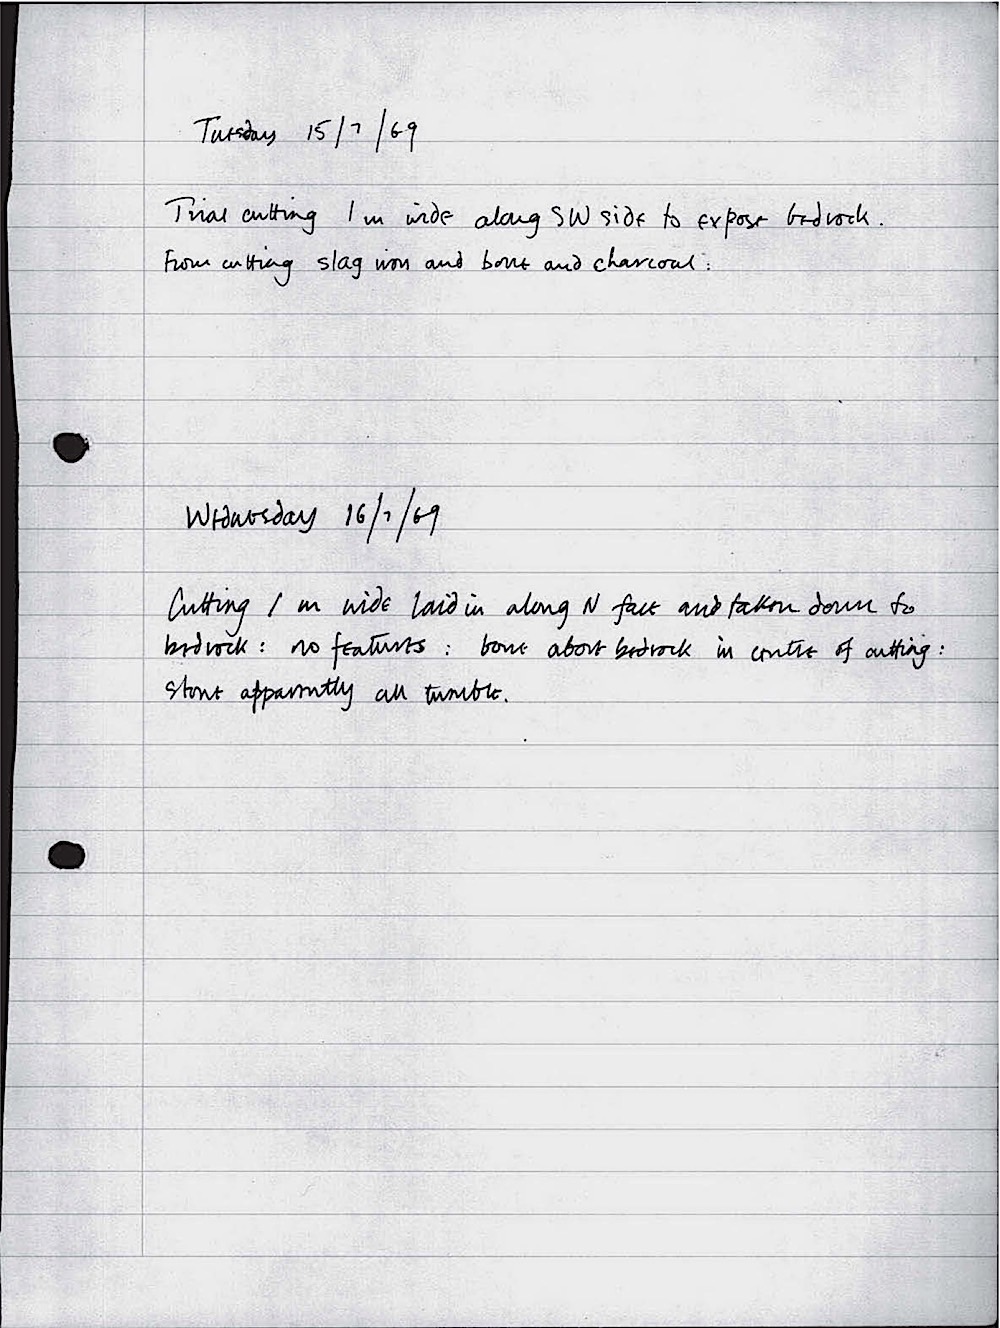 Tuesday 15/7/69
Trial cutting 1 m wide along SW side to expose bedrock.
From cutting slag iron and bone and charcoal:
Wednesday 16/7/69
Cutting 1 m wide laid in along N face and taken down to
bedrock: no features: bone above bedrock in centre of cutting:
stone apparently all tumble.